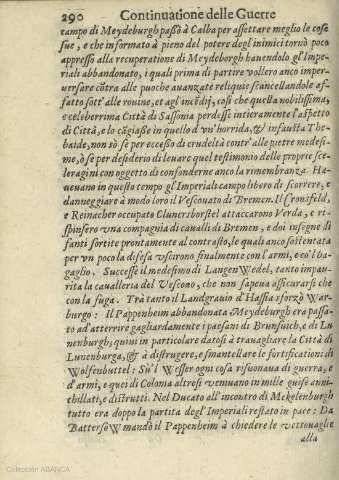 290 Continuatione delle Guerre
campo di Meydeburgh passò à Calba per assettare meglio le cose
sue, e che informato à pieno del potere degl'inimici tornò poco
appresso alla recuperatione di Meydeborgh hauendolo gl'Impe-
riali abbandonato, i quali prima di partire vollero anco imper-
uersare cōtra alle puoche auanzate reliquie scancellandole af-
fatto sott'alle rouine, et agl'incēdij, così che quella nobilissima,
e celeberrima Città di Sassonia perdesse intieramente l'aspetto
di Città, e lo cāgiasse in quello d'vn'horrida, & infausta The-
baide, non sò se per eccesso di crudeltà contr'alle pietre medesi-
me, ò se per desiderio di leuare quel testimonio delle proprie sce-
leragini con oggetto di confonderne anco la rimembranza. Ha-
ueuano in questo tempo gl'Imperiali campo libero di scorrere, e
danneggiare à modo loro il Vescouato di Bremen. Il Cronsfeld,
e Reinacher occupato Cluncriborstel attaccarono Verda, e ri-
spinsero vna compagnia di caualli di Bremen, e doi insegne di
fanti sortite prontamente al contrasto, le quali anco sostentata
per vn poco la difesa vscirono finalmente con l'armi, e co'l ba-
gaglio. Successe il medesimo di Langen Wedel, tanto impau-
rita la caualleria del Vescono, che non sapeua assicurarsi che
con la fuga. Trà tanto il Landgrauio d'Hassia sforzò War-
burgo: Il Pappenheim abbandonata Meydeburgh era passa-
to ad atterrire gagliardamente i paesani di Brunsuich, e di Lu-
nenburgh; quini in particolare datosi à trauagliare la Città di
Lunenburga, & à distrugere, e smantellare le fortificationi di
Wolfenbuttel: Sù'l Wesser ogni cosa risuonaua di guerra, e
d'armi, e quei di Colonia altresì veniuano in mille guise anni-
chillati, e distrutti. Nel Ducato all'incontro di Meckelenburgh
tutto era doppo la partita degl'Imperiali restato in pace: Da
Battersò Wmandò il Pappenheim à chiedere le vettouaglie
alla
Colección ABANCA